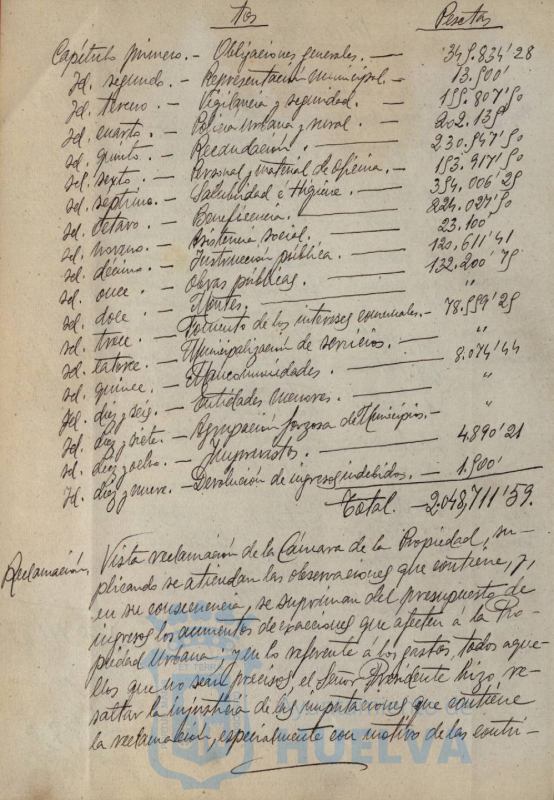 tos Pesetas
Capítulo primero.- Obligaciones generales. — 345.834'28
Id. segundo. - Representación municipal. — 13.500'
Id. tercero. - Vigilancia y seguridad. — 155.807'50
Id. cuarto. - Policía Urbana y rural. — 202.135'
Id. quinto. - Recaudación. — 230.547'50
Id. sexto. - Personal y material de oficina. — 153.917'50
Id. septimo. - Salubridad é Higiene. — 354.006'25
Id. octavo. - Beneficencia. — 224.027'50
Id. noveno. - Asistencia social. — 23.100
Id. décimo. - Instrucción pública. — 120.611'41
Id. once. - Obras públicas. — 132.200'75
Id. doce. - Montes. — "
Id. trece. - Fomento de los intereses comunales. - 78.559'25
Id. catorce. - Municipalización de servicios. — "
Id. quince. - Mancomunidades. — 8.074'44
Id. diez y seis. - Entidades menores. — "
Id. diez y siete. - Agrupación forzosa de Municipios. - "
Id. diez y ocho. - Imprevistos. — 4.890'21
Id. diez y nueve. - Devolución de ingresos indebidos. - 1.500'
Total. - 2.048,711'59.
Reclamación, Vista reclamación de la Cámara de la Propiedad, su-
plicando se atiendan las observaciones que contiene, y,
en su consecuencia, se supriman del presupuesto de
ingresos los aumentos de exacciones que afecten á la Pro-
piedad Urbana; y en lo referente a los gastos, todos aque-
llos que no sean precisos, el Señor Presidente hizo re-
saltar la injusticia de las imputaciones que contiene
la reclamación, especialmente con motivo de las contri-
HUELVA